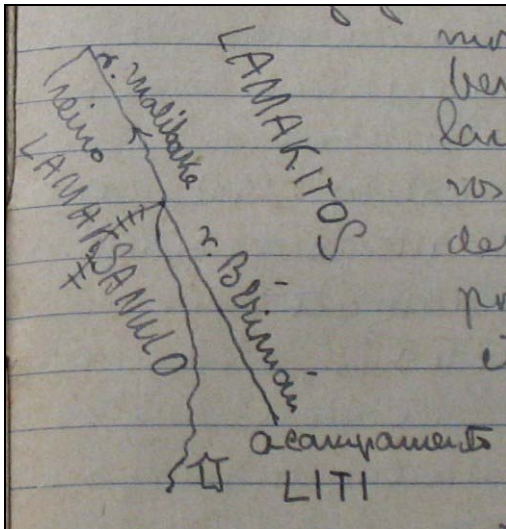 LAMAKITOS
r. malibaka
reino
LAMAKSANULO
r.
acampamento
LITI
de